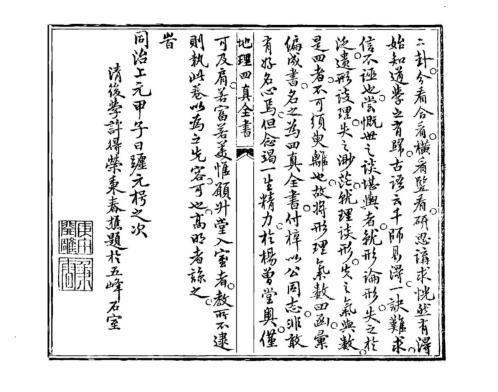 二卦分看合看橫看豎看研思講求恍然有得
始知道學之有歸古語云千師易得一訣難求
信不誣也嘗慨世之談堪輿者就形論形失之於
泛遺形談理失之渺茫就理談形失之氣與數
是四者不可須臾離也故將形理氣數四函彙
偏成書名之為四真全書付梓以公同志非敢
有好名心焉但念竭一生精力於楊曾堂奧僅
地理四真全書
可及肩若富若美惟願升堂入室者教所不逮
則執此卷以為之先容可也高明者諒之
旹
同治上元甲子日躔元枵之次
清後學許得榮東春樵題於五峰石室